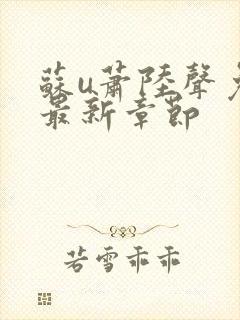 蘇u蕭陸聲
最新章節
若雪乖乖